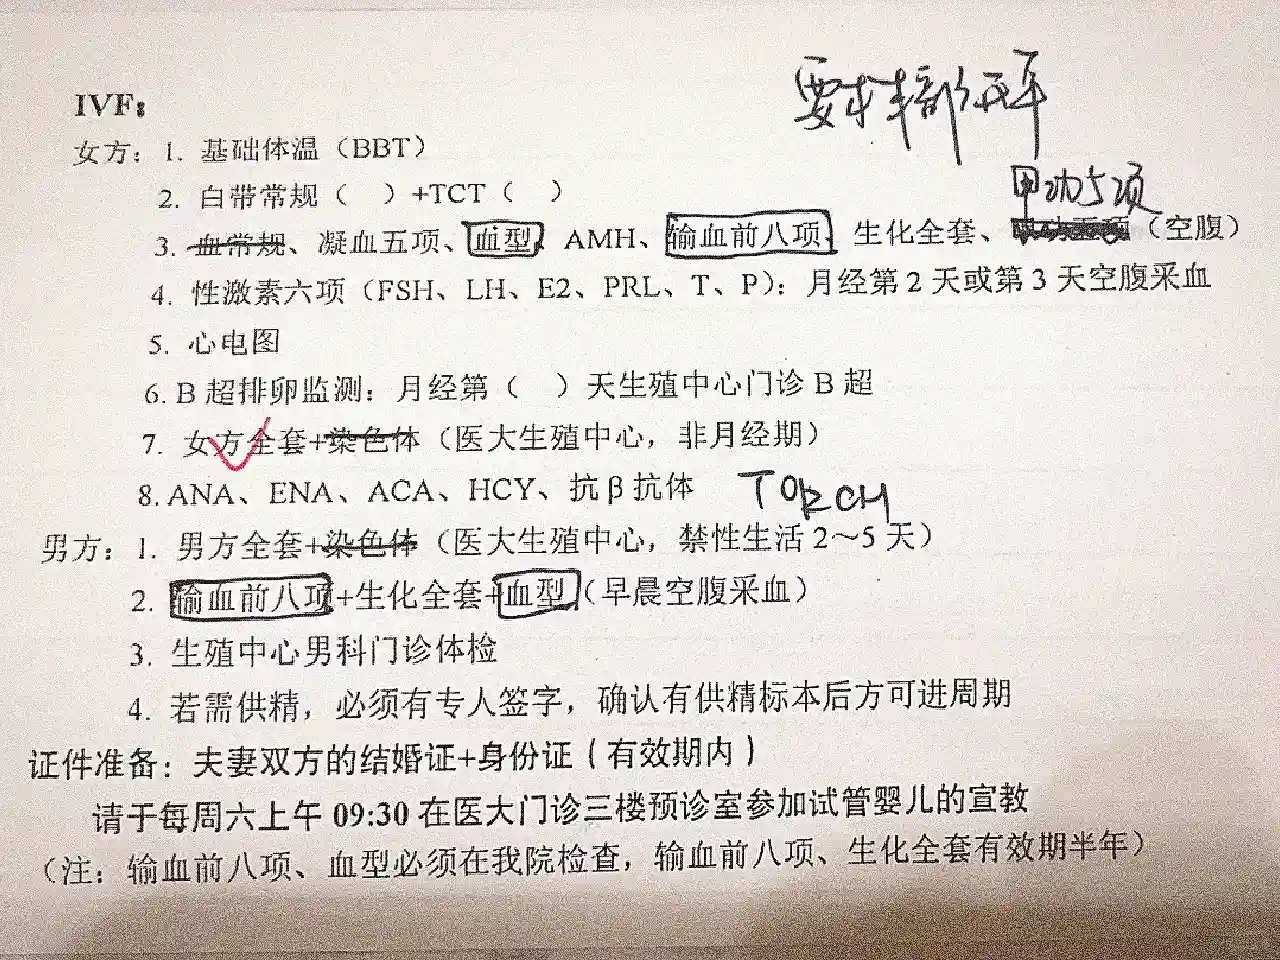 IVF:
女方：1. 基础体温（BBT）
2. 白带常规（ ）+TCT（ ）
甲功5项
3. 血常规、凝血五项、血型、AMH、输血前八项、生化全套、（空腹）
4. 性激素六项（FSH、LH、E2、PRL、T、P）：月经第 2 天或第 3 天空腹采血
5. 心电图
6. B 超排卵监测：月经第（ ）天生殖中心门诊 B 超
7. 女方全套+染色体（医大生殖中心，非月经期）
8. ANA、ENA、ACA、HCY、抗β抗体 TORCH
男方：1. 男方全套+染色体（医大生殖中心，禁性生活 2～5 天）
2. 输血前八项+生化全套+血型（早晨空腹采血）
3. 生殖中心男科门诊体检
4. 若需供精，必须有专人签字，确认有供精标本后方可进周期
证件准备：夫妻双方的结婚证+身份证（有效期内）
请于每周六上午 09:30 在医大门诊三楼预诊室参加试管婴儿的宣教
（注：输血前八项、血型必须在我院检查，输血前八项、生化全套有效期半年）